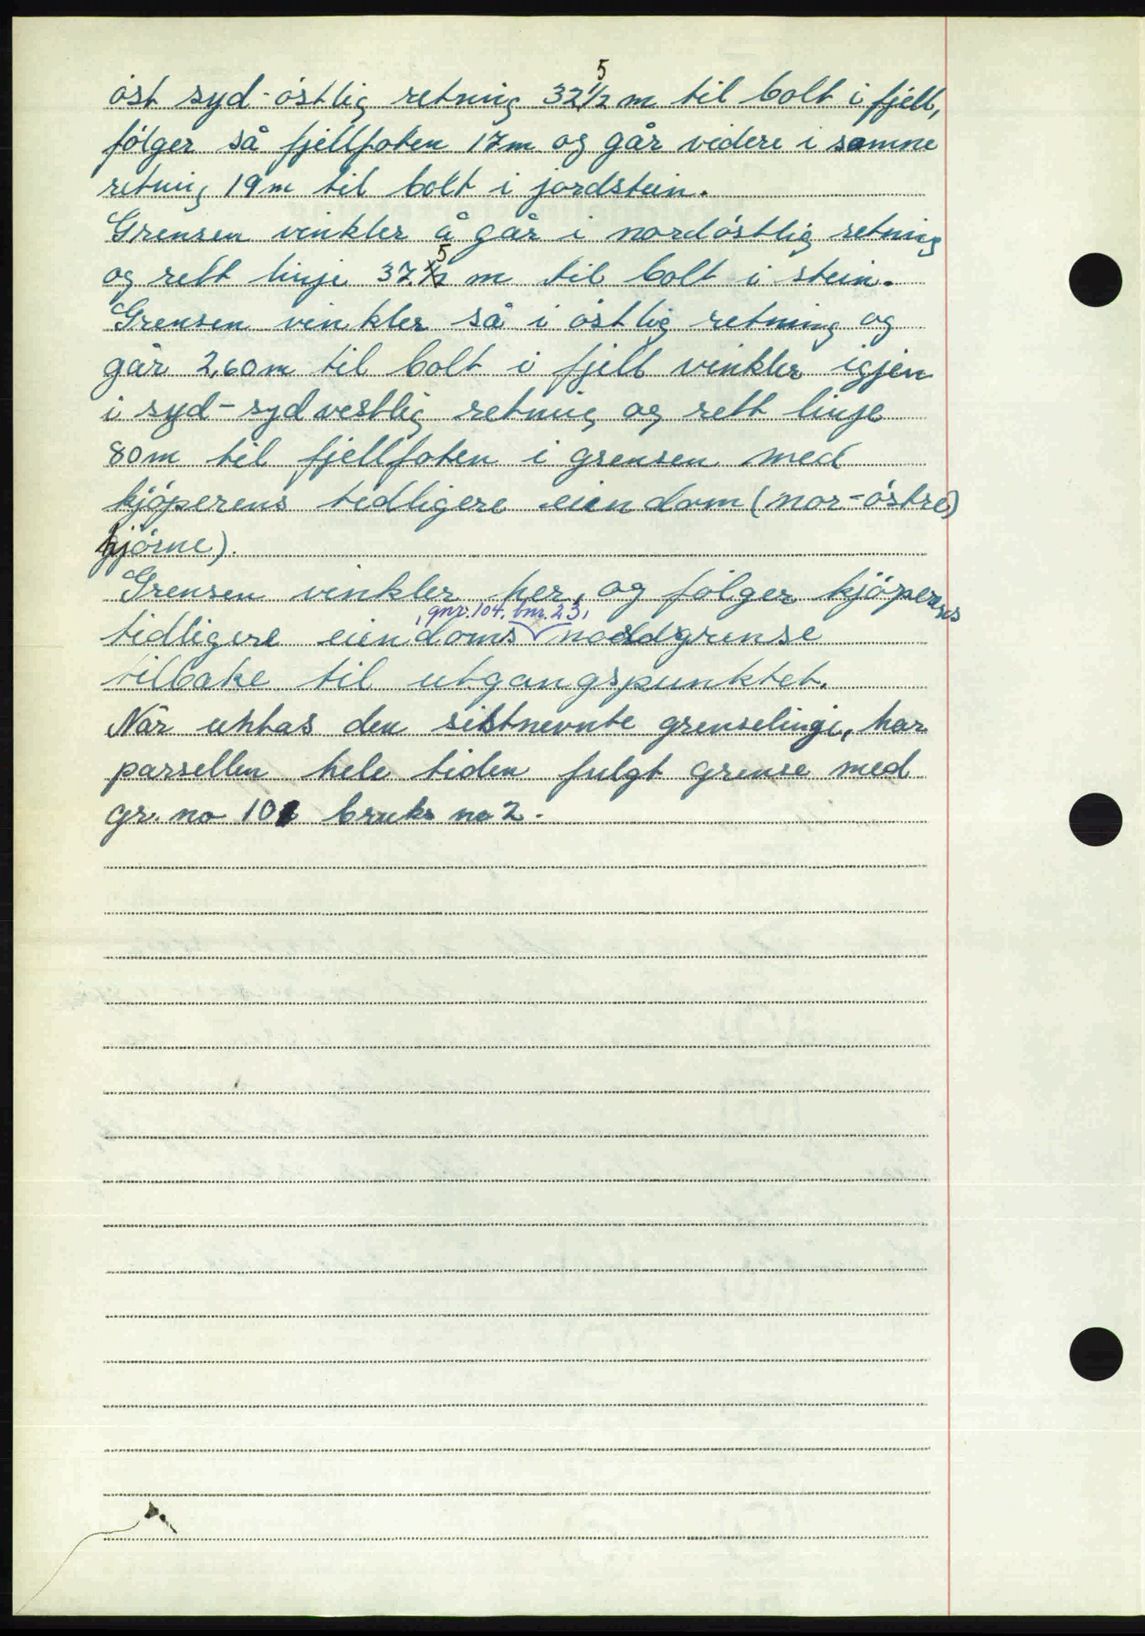 öst syd-östlig retning 32,5 m til bolt i fjell,
fölger så fjellfoten 17m og går videre i samme
retning 19m til bolt i jordstein.
Grensen vinkler å går i nordöstlig retning
og rett linje 37,5 m til bolt i stein.
Grensen vinkler så i östlig retning og
går 2,60m til bolt i fjell vinkler igjen
i syd-sydvestlig retning og rett linje
80m til fjellfoten i grensen med
kjöperens tidligere eiendom (nor-östre)
hjörne).
Grensen vinkler her, og fölger kjöperens
, gnr. 104, bnr. 23,
tidligere eiendoms nordgrense
tilbake til utgangspunktet.
Når unntas den sistnevnte grenselinje, har
parsellen hele tiden fulgt grense med
gr. no 10 bruks no 2.